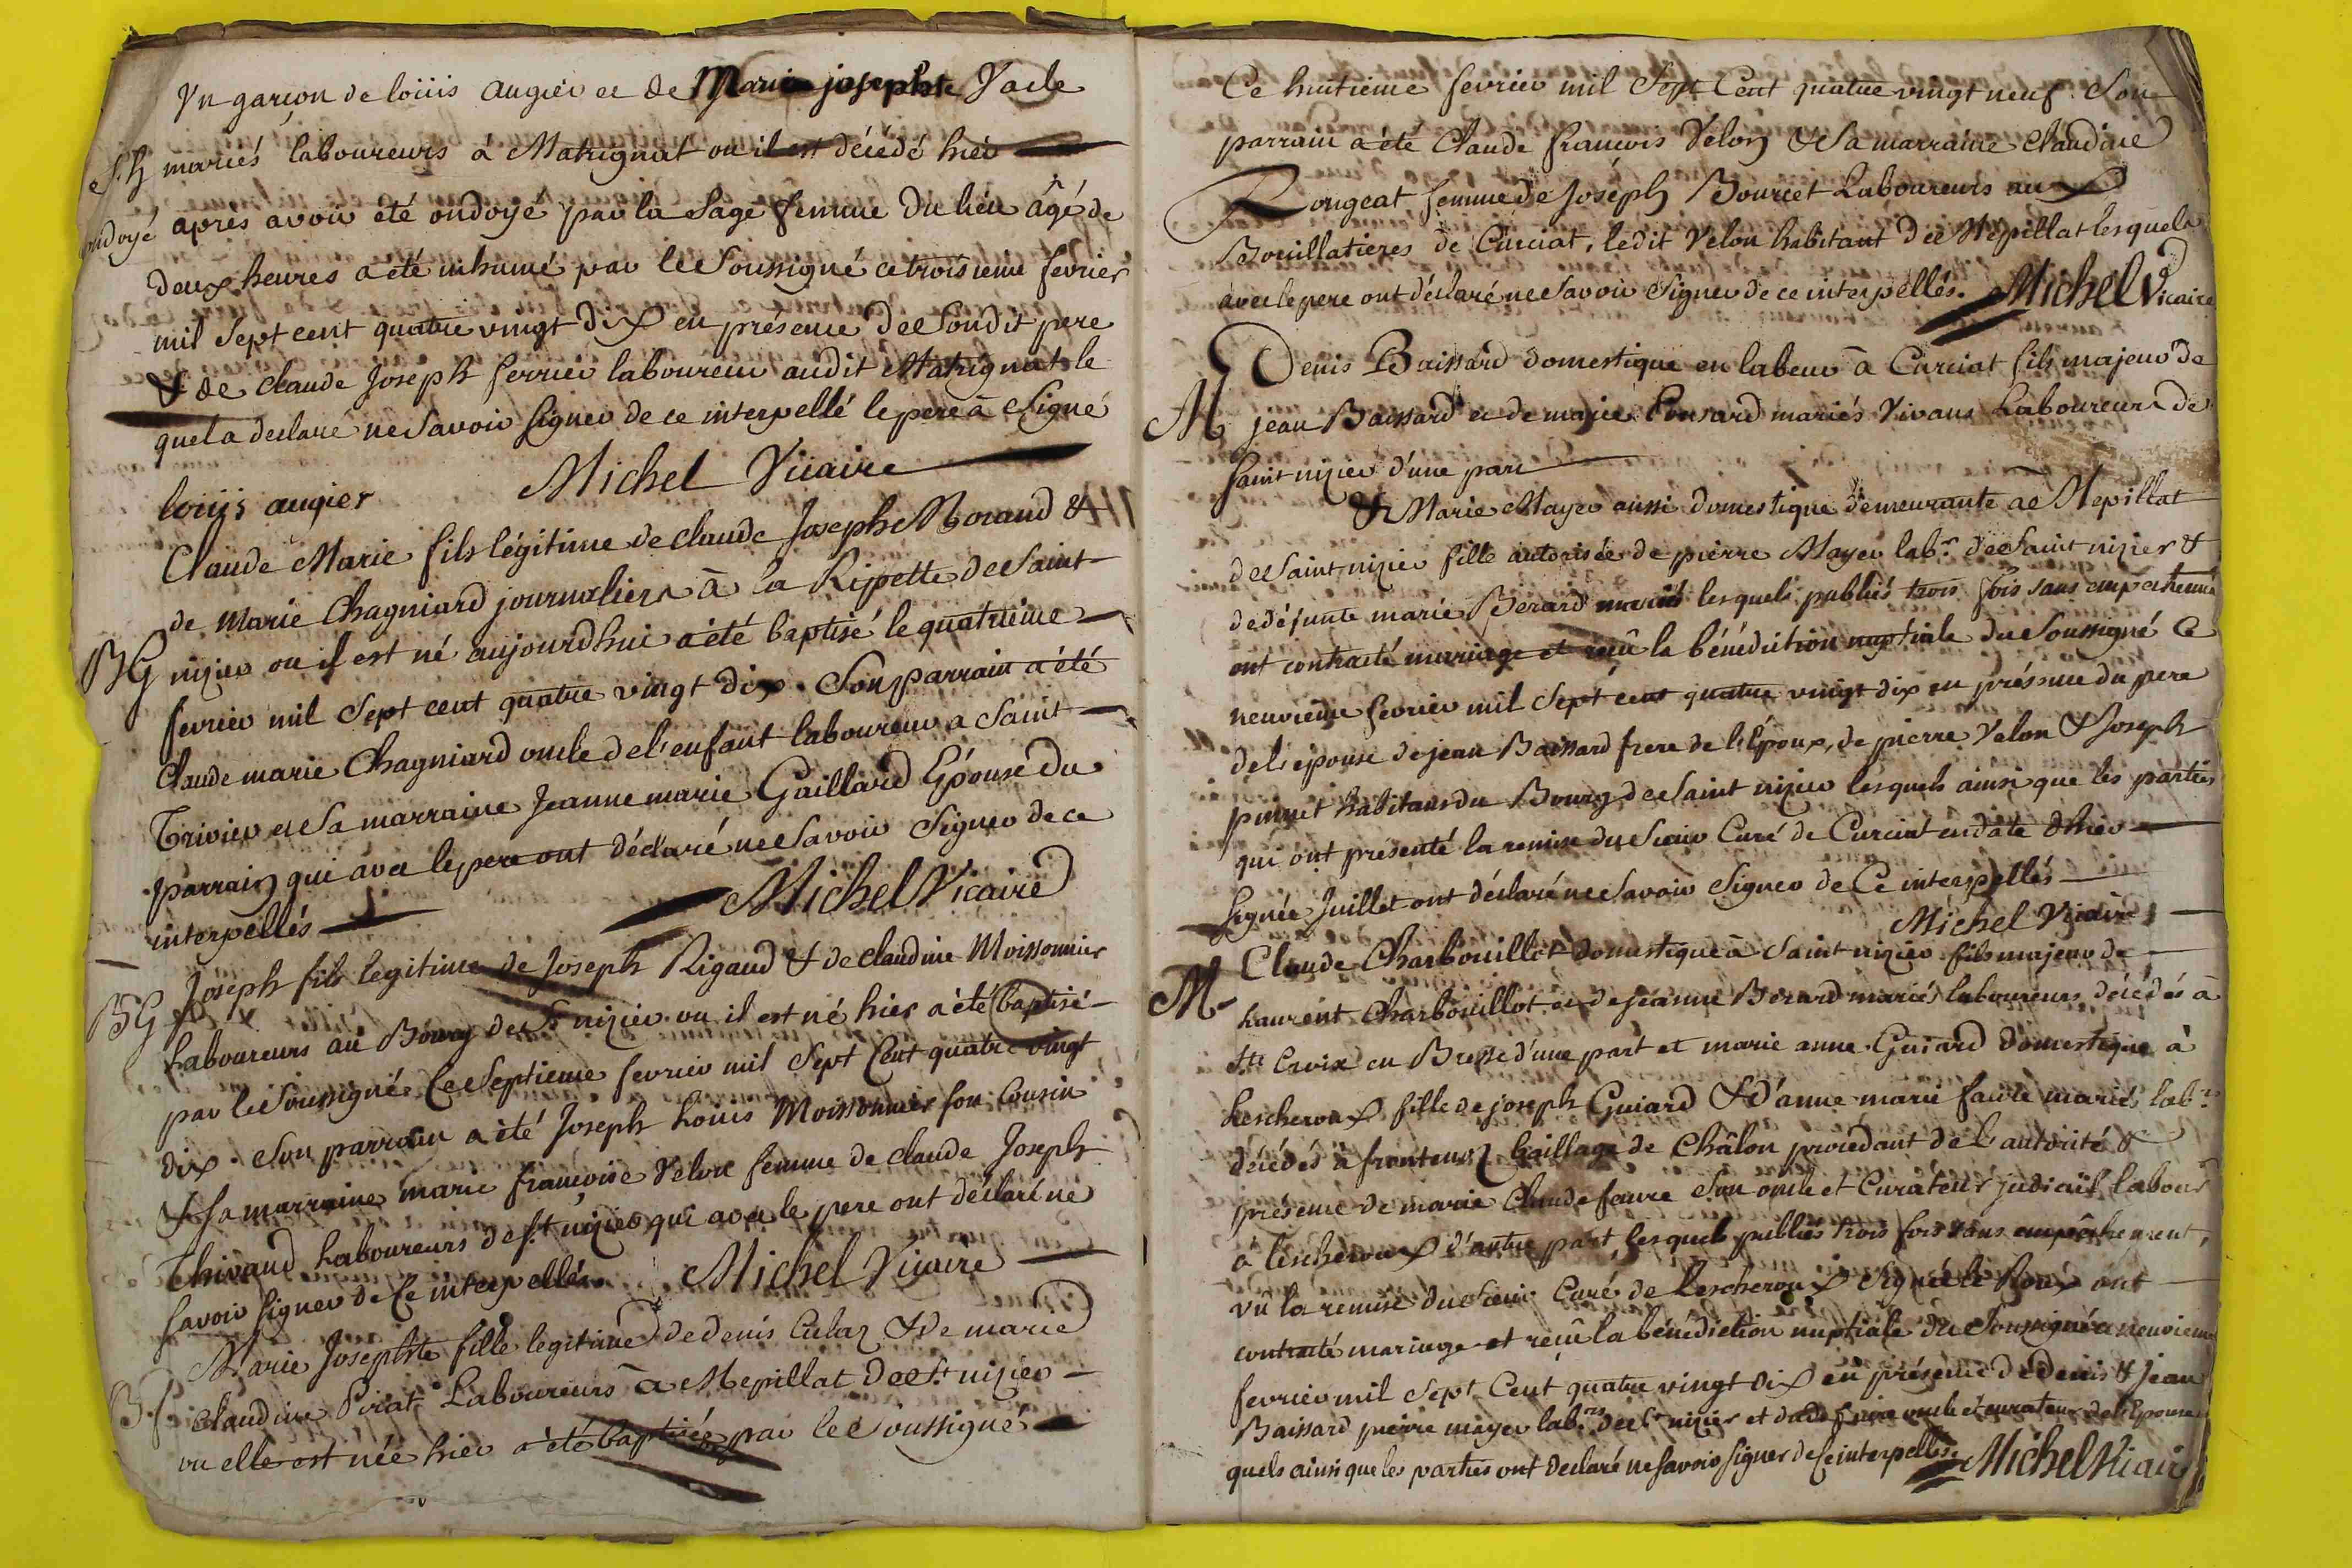 Un garçon de loüis augier et de Marie josephte Jacle
S.h mariés laboureurs à Matrignat ou il est décédé hier
ondoyé après avoir été ondoyé par la sage femme du lieu âgé de
deux heures a été inhumé par le soussigné ce troisieme fevrier
mil sept cent quatre vingt dix en présence de son dit pere
& de claude Joseph ferrier laboureur audit Matrignat le
quel a declaré ne savoir signer de ce interpellé le pere à signé
louis augier Michel Vicaire
Claude Marie fils légitime de claude Joseph Morand &
de Marie Chagniard journaliers à la Ripette de Saint
BG nizier ou il est né aujourdhui a été baptisé le quatrieme
fevrier mil sept cent quatre vingt dix. Son parrain a été
Claude marie Chagniard oncle de l'enfant laboureur a Saint
Trivier et Sa marraine Jeanne marie Gaillard Epouse du
parrain qui avec le pere ont déclaré ne savoir signer de ce
interpellés Michel Vicaire
Joseph fils legitime de Joseph Rigaud & de claudine Moissonnier
BG Laboureurs au Bourg de St nizier ou il est né hier a été baptisé
par le soussigné ce septieme fevrier mil sept cent quatre vingt
dix. Son parrain a été Joseph Louis Moissonnier son cousin
& sa marraine marie françoise Velon femme de claude Joseph
Thivaud Laboureurs de St nizier qui avec le pere ont déclaré ne
savoir signer de ce interpellés. Michel Vicaire
Marie Josephte fille legitime de denis Culaz & de marie
B.f claudine Poiat Laboureurs à Mepillat de St nizier
ou elle est née hier a été baptisée par le soussigné
Ce huitieme fevrier mil Sept Cent quatre vingt neuf. Son
parrain a été Claude françois Velon & Sa marraine claudine
Rongeat femme de Joseph Bourcet Laboureurs aux
Bouillatieres de Curciat, ledit Velon habitant de Mépillat lesquels
avec le pere ont déclaré ne savoir signer de ce interpellés. Michel Vicaire
Denis Baissard domestique en labeur à Curciat fils majeur de
M jean Baissard et de marie Ponsard mariés vivans Laboureurs de
Saint nizier d'une part
& Marie Mayer aussi domestique demeurante à Mepillat
de Saint nizier fille autorisée de pierre Mayer labr. de Saint nizier &
de défunte marie Berard mariés lesquels publiés trois fois sans empechement
ont contracté mariage et reçû la bénédiction nuptiale du soussigné ce
neuvieme fevrier mil sept cent quatre vingt dix en présence du pere
de l'epouse de jean Baissard frere de l'Epoux, de pierre Velon & Joseph
pinnet habitans du Bourg de Saint nizier lesquels ainsi que les parties
qui ont présenté la remise du sieur Curé de Curciat en date d'hier
signée Juillet ont déclaré ne savoir signer de ce interpellés
Michel Vicaire
Claude Charbouillot domestique à Saint nizier fils majeur de
M Laurent Charbouillot et de jeanne Berard mariés laboureurs décédés à
Ste Croix en Bresse d'une part et marie anne Guiard domestique à
Lescheroux fille de joseph Guiard & d'anne marie faure mariés labrs.
décédés à frontenaz Baillage de Châlon procédant de l'autorité &
présence de marie Claude faure son oncle et Curateur judiciel labour
à Lescheroux d'autre part, lesquels publiés trois fois sans empêchement,
vû la remise du sieur Curé de Lescheroux signé le Roux ont
contracté mariage et reçû la bénédiction nuptiale du Soussigné ce neuvieme
fevrier mil sept Cent quatre vingt dix en présence de denis & jean
Baissard pierre mayer labrs. de St nizier et dudit faure oncle et curateur de l'Epouse
quels ainsi que les parties ont declaré ne savoir signer de ce interpellés. Michel Vicaire